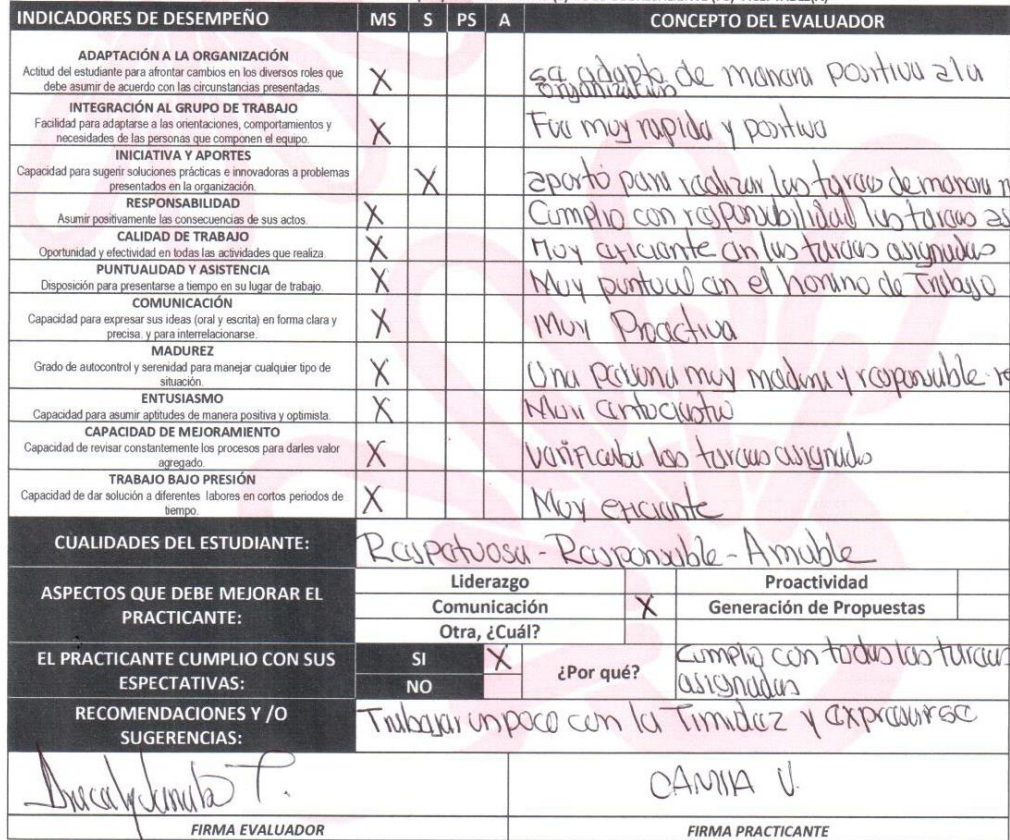 INDICADORES DE DESEMPEÑO MS S PS A CONCEPTO DEL EVALUADOR
ADAPTACIÓN A LA ORGANIZACIÓN
Actitud del estudiante para afrontar cambios en los diversos roles que
debe asumir de acuerdo con las circunstancias presentadas.
X
se adapto de manera positiva a la
organización
INTEGRACIÓN AL GRUPO DE TRABAJO
Facilidad para adaptarse a las orientaciones, comportamientos y
necesidades de las personas que componen el equipo.
X
Fue muy rapida y positiva
INICIATIVA Y APORTES
Capacidad para sugerir soluciones prácticas e innovadoras a problemas
presentados en la organización.
X
aportó para realizar las tareas de manera
RESPONSABILIDAD
Asumir positivamente las consecuencias de sus actos.
X
Cumplio con responsabilidad las tareas as
CALIDAD DE TRABAJO
Oportunidad y efectividad en todas las actividades que realiza.
X
Muy eficiente en las tareas asignadas
PUNTUALIDAD Y ASISTENCIA
Disposición para presentarse a tiempo en su lugar de trabajo.
X
Muy puntual en el horario de Trabajo
COMUNICACIÓN
Capacidad para expresar sus ideas (oral y escrita) en forma clara y
precisa. y para interrelacionarse.
X
Muy Proactiva
MADUREZ
Grado de autocontrol y serenidad para manejar cualquier tipo de
situación.
X
Una persona muy madura y responsable
ENTUSIASMO
Capacidad para asumir aptitudes de manera positiva y optimista.
X
Muy
CAPACIDAD DE MEJORAMIENTO
Capacidad de revisar constantemente los procesos para darles valor
agregado.
X
Verificaba las tareas asignadas
TRABAJO BAJO PRESIÓN
Capacidad de dar solución a diferentes labores en cortos periodos de
tiempo.
X
Muy eficiente
CUALIDADES DEL ESTUDIANTE:
Respetuosa - Responsable - Amable
ASPECTOS QUE DEBE MEJORAR EL
PRACTICANTE:
Liderazgo Proactividad
Comunicación X Generación de Propuestas
Otra, ¿Cuál?
EL PRACTICANTE CUMPLIO CON SUS
ESPECTATIVAS:
SI X
NO
¿Por qué?
Cumplio con todas las tareas
asignadas
RECOMENDACIONES Y /O
SUGERENCIAS:
Trabajar un poco con la Timidez y expresarse
CAMILA V.
FIRMA EVALUADOR FIRMA PRACTICANTE